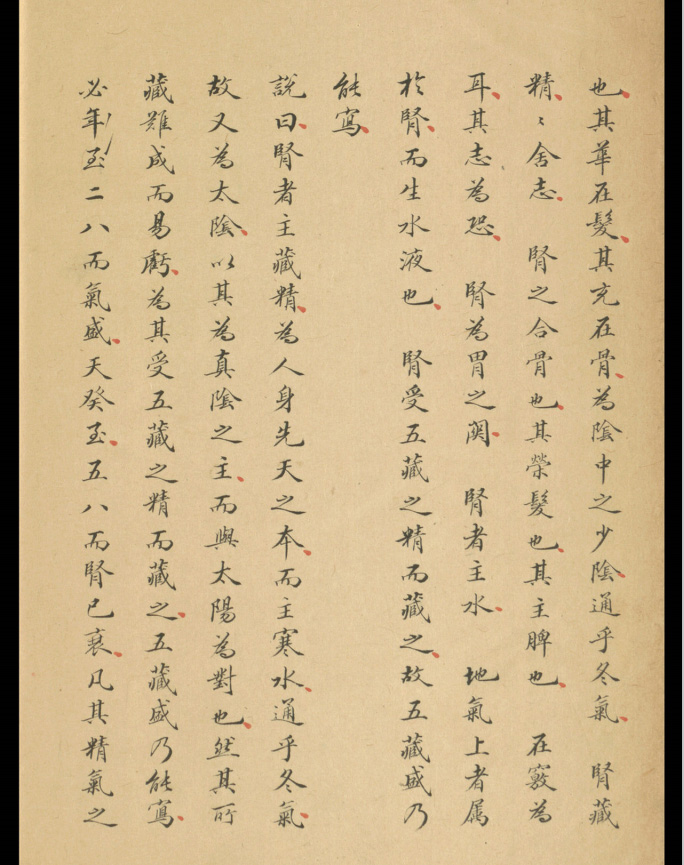 也其華在髮其充在骨為陰中之少陰通乎冬氣　腎藏
精〻舍志　腎之合骨也其榮髮也其主脾也　在竅為
耳其志為恐　腎為胃之関　腎者主水　地氣上者属
於腎而生水液也　腎受五藏之精而藏之故五藏盛乃
能寫
說曰腎者主藏精為人身先天之本而主寒水通乎冬氣
故又為太陰以其為真陰之主而與太陽為對也然其所
藏難成而易虧為其受五藏之精而藏之五藏盛乃能寫
必年至二八而氣盛天癸至五八而腎已衰凡其精氣之